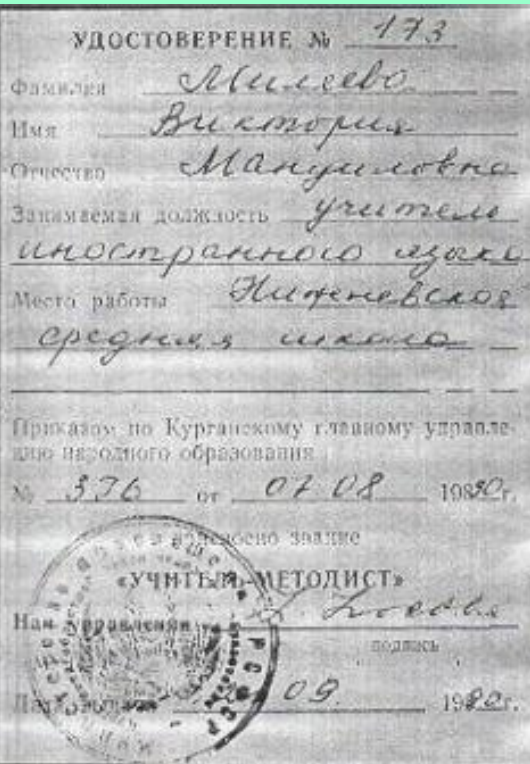 УДОСТОВЕРЕНИЕ № 173
Фамилия Милеева
Имя Виктория
Отчество Мануиловна
Занимаемая должность учитель
иностранного языка
Место работы
средняя школа
Приказом по Курганскому главному управле-
нию народного образования
№ 376 от 07.08 1990г.
присвоено звание
«УЧИТЕЛЬ-МЕТОДИСТ»
Нач. управления
подпись
09 1990г.
РСФСР